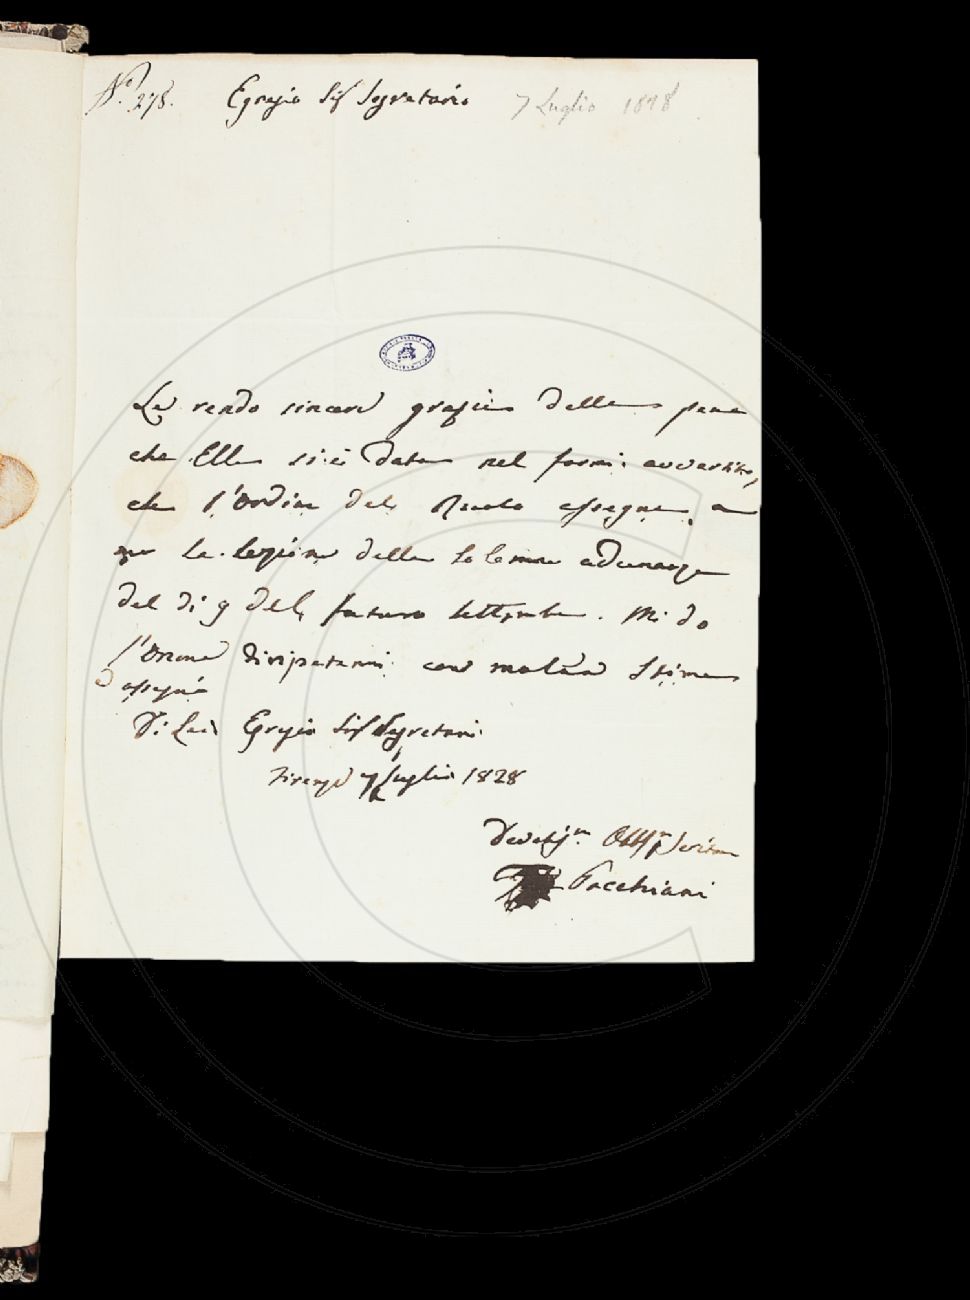 N.° 278.
Egregio Sig Segretario
7 Luglio 1828
Le rendo sincere grazie della pena
che Ella si è data nel farmi avvertito,
che l'Ordine del Ruolo assegna a
me la lezione della solenne adunanza
del dì 9 del futuro Settembre. Mi do
l'onore di ripetermi con molta stima
e ossequio
Di Lei Egregio Sig Segretario
Firenze 7 Luglio 1828
Devotis.mo Obb.mo Servitore
Pacchiani